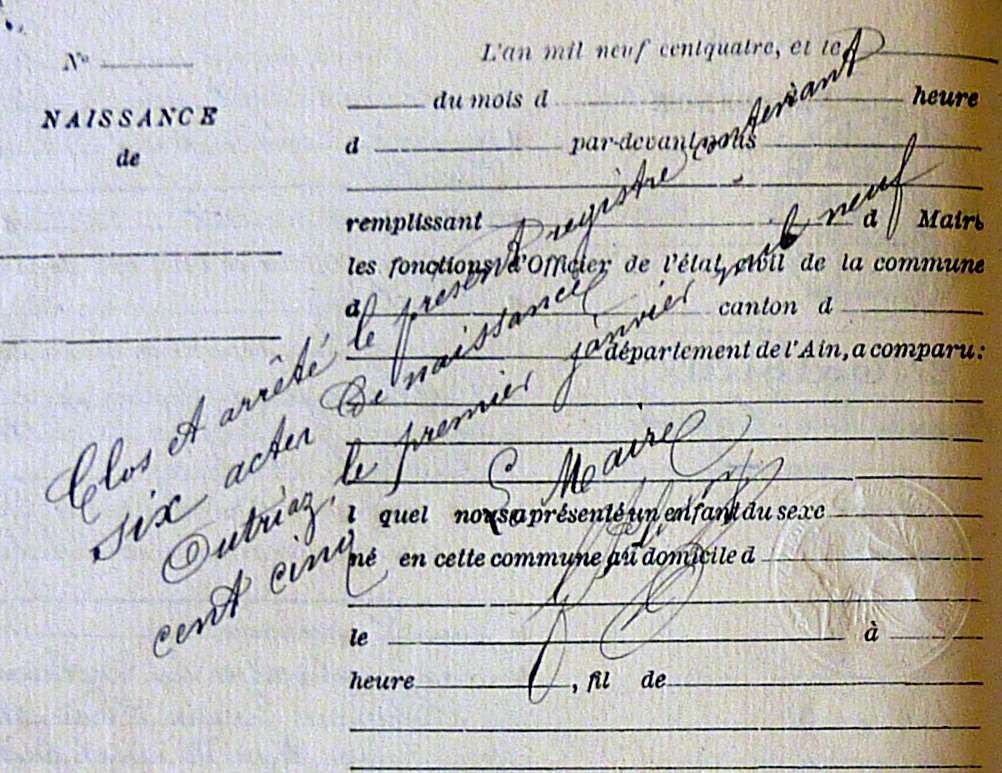 N°
NAISSANCE
de
L'an mil neuf cent quatre, et le
du mois d heure
d par-devant nous
remplissant d Mair
les fonctions d'Officier de l'état civil de la commune
d canton d
département de l'Ain, a comparu:
l quel nous a présenté un enfant du sexe
né en cette commune au domicile d
le à
heure , fil de
Clos et arrêté le présent registre contenant
six actes de naissance
Outriaz, le premier janvier mil neuf
cent cinq
Le Maire